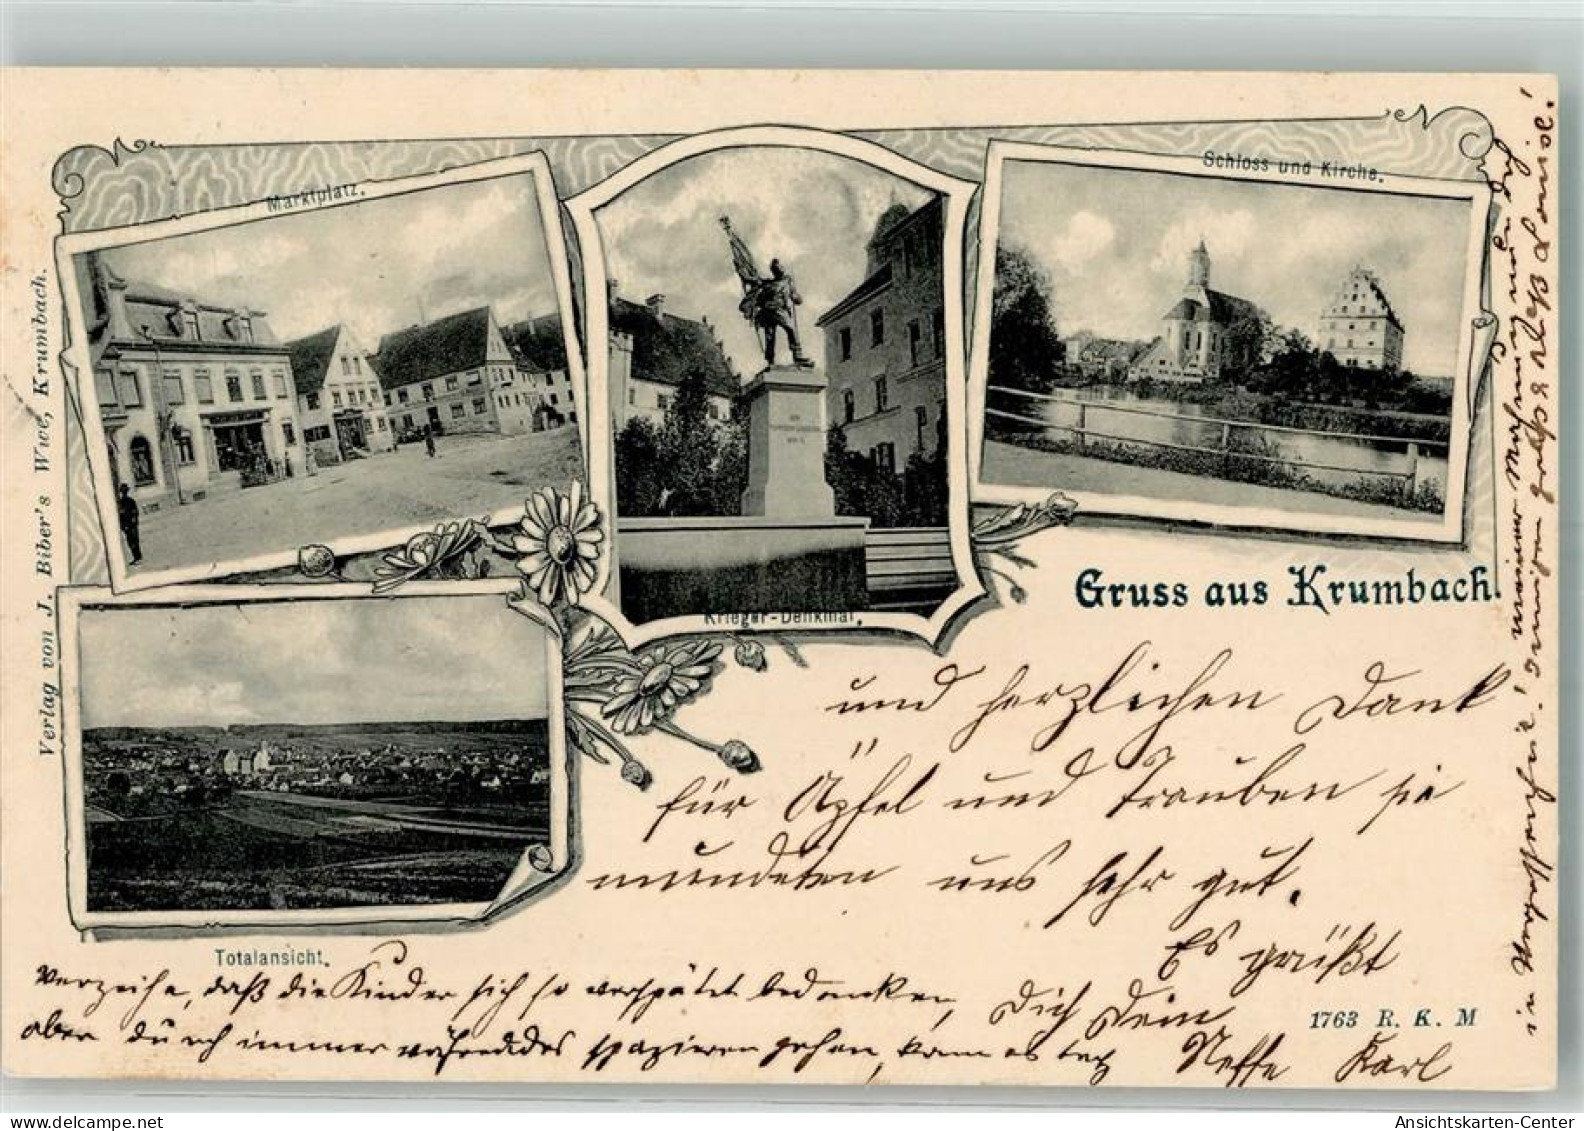 Marktplatz.
Schloss und Kirche.
Krieger-Denkmal.
Totalansicht.
Gruss aus Krumbach.
Verlag von J. Biber's Wwe, Krumbach.
und herzlichen Dank
für Äpfel und Trauben sie
mundeten uns sehr gut.
Es grüßt
Dich Dein
Neffe Karl
Verzeihe, daß die Kinder sich so verspätet bedanken,
aber durch immerwährendes spazieren gehen, kam es
1763 R. K. M
in Vergessenheit! meiner
Ansichtskarten-Center